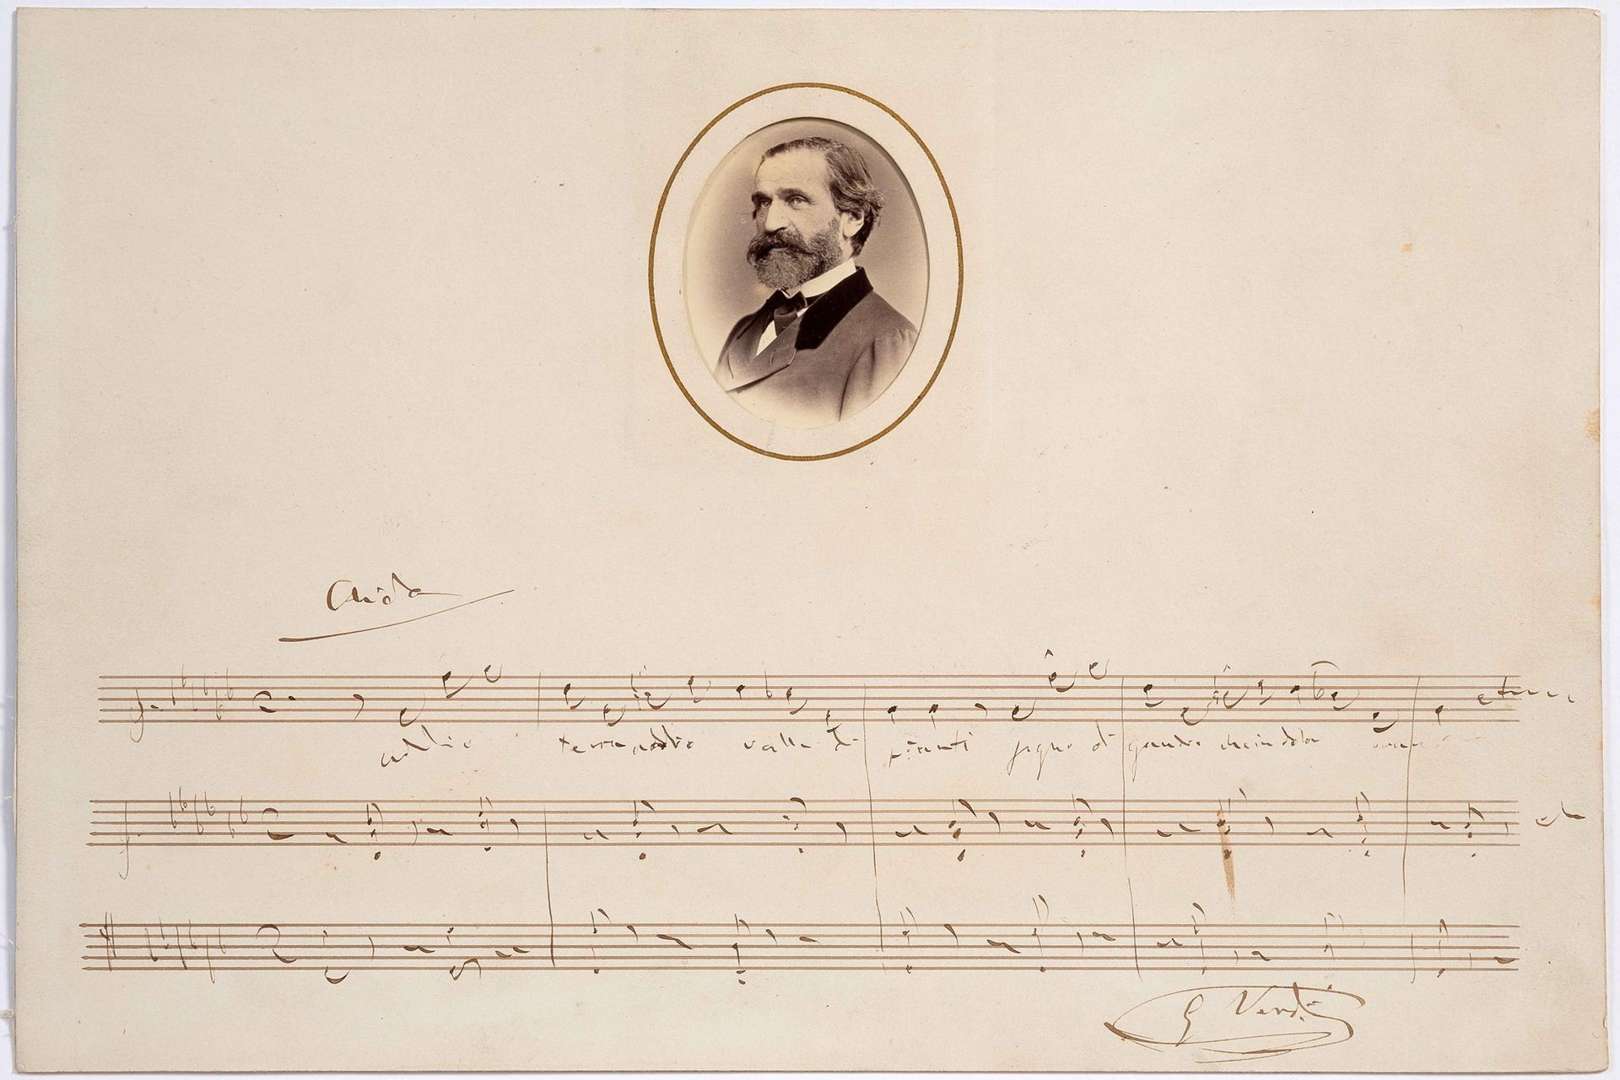 Aida
addio terra addio valle di pianti sogno di gaudio che in dolor
etc
G Verdi